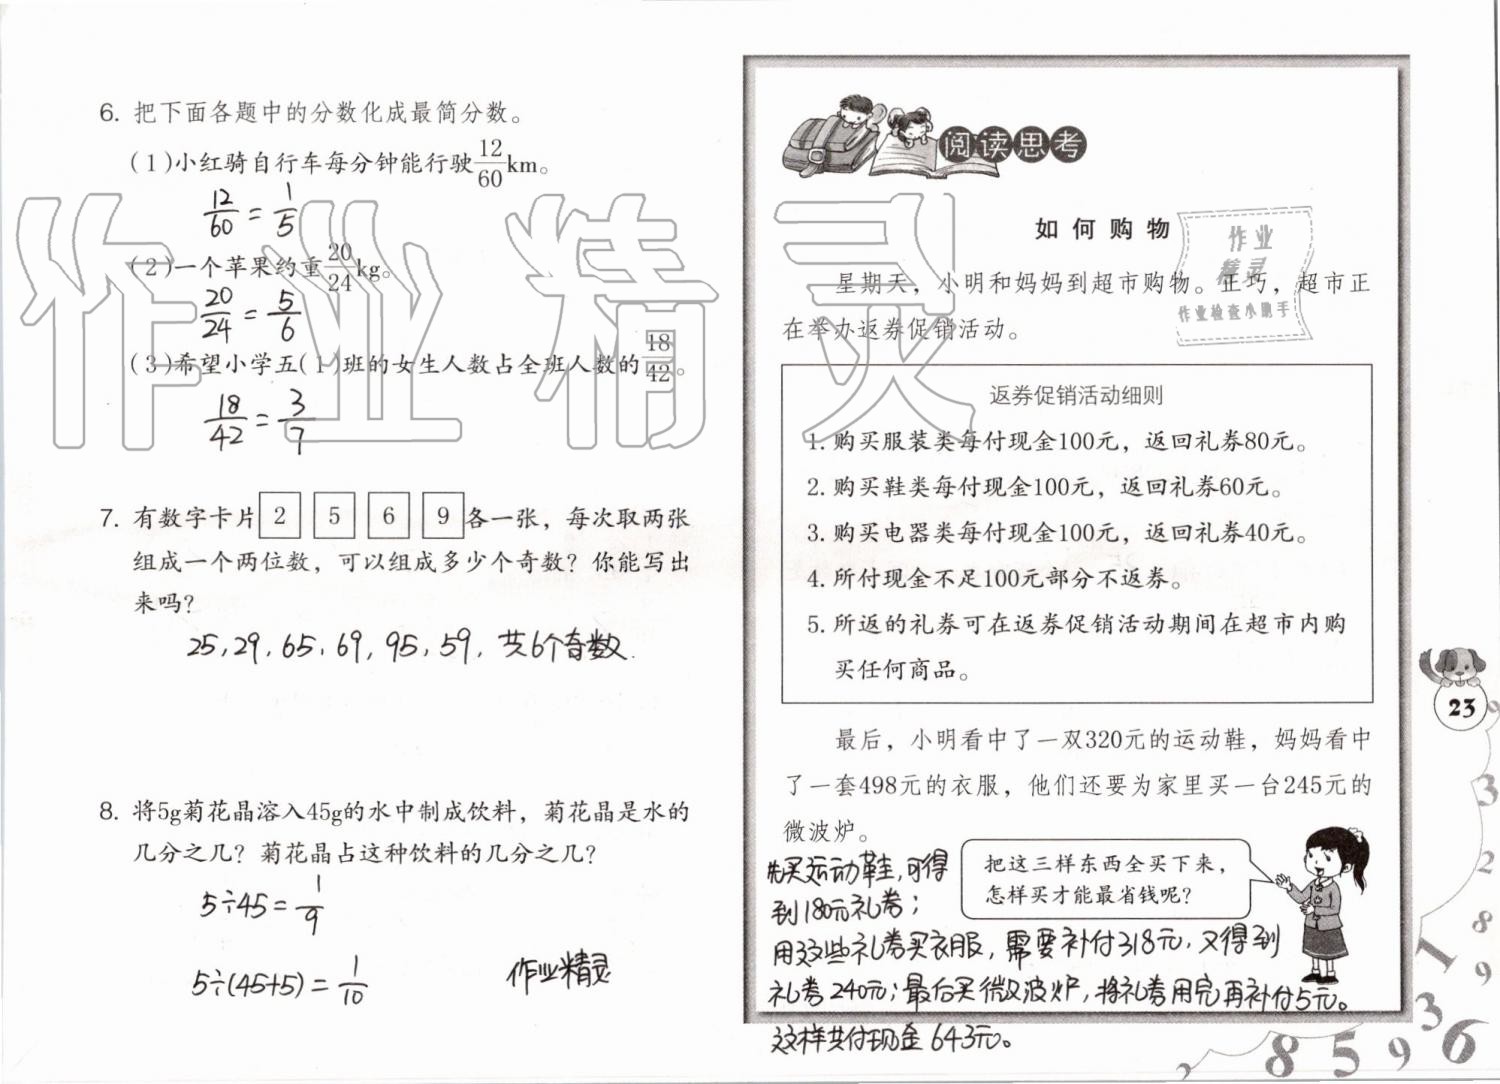 6. 把下面各题中的分数化成最简分数。
(1)小红骑自行车每分钟能行驶12/60km。
12/60 = 1/5
(2)一个苹果约重20/24kg。
20/24 = 5/6
(3)希望小学五(1)班的女生人数占全班人数的18/42。
18/42 = 3/7
7. 有数字卡片 2 5 6 9 各一张，每次取两张
组成一个两位数，可以组成多少个奇数？你能写出
来吗？
25，29，65，69，95，59，共6个奇数.
8. 将5g菊花晶溶入45g的水中制成饮料，菊花晶是水的
几分之几？菊花晶占这种饮料的几分之几？
5÷45=1/9
5÷(45+5)=1/10
作业精灵
作业精灵
阅读思考
如何购物
作业
精灵
作业检查小助手
星期天，小明和妈妈到超市购物。正巧，超市正
在举办返券促销活动。
返券促销活动细则
1. 购买服装类每付现金100元，返回礼券80元。
2. 购买鞋类每付现金100元，返回礼券60元。
3. 购买电器类每付现金100元，返回礼券40元。
4. 所付现金不足100元部分不返券。
5. 所返的礼券可在返券促销活动期间在超市内购
买任何商品。
最后，小明看中了一双320元的运动鞋，妈妈看中
了一套498元的衣服，他们还要为家里买一台245元的
微波炉。
把这三样东西全买下来，
怎样买才能最省钱呢？
先买运动鞋，可得
到180元礼券；
用这些礼券买衣服，需要补付318元，又得到
礼券240元；最后买微波炉，将礼券用完再补付5元。
这样共付现金643元。
23
9
3
2
8
9
1
3
6
2
8
5
9